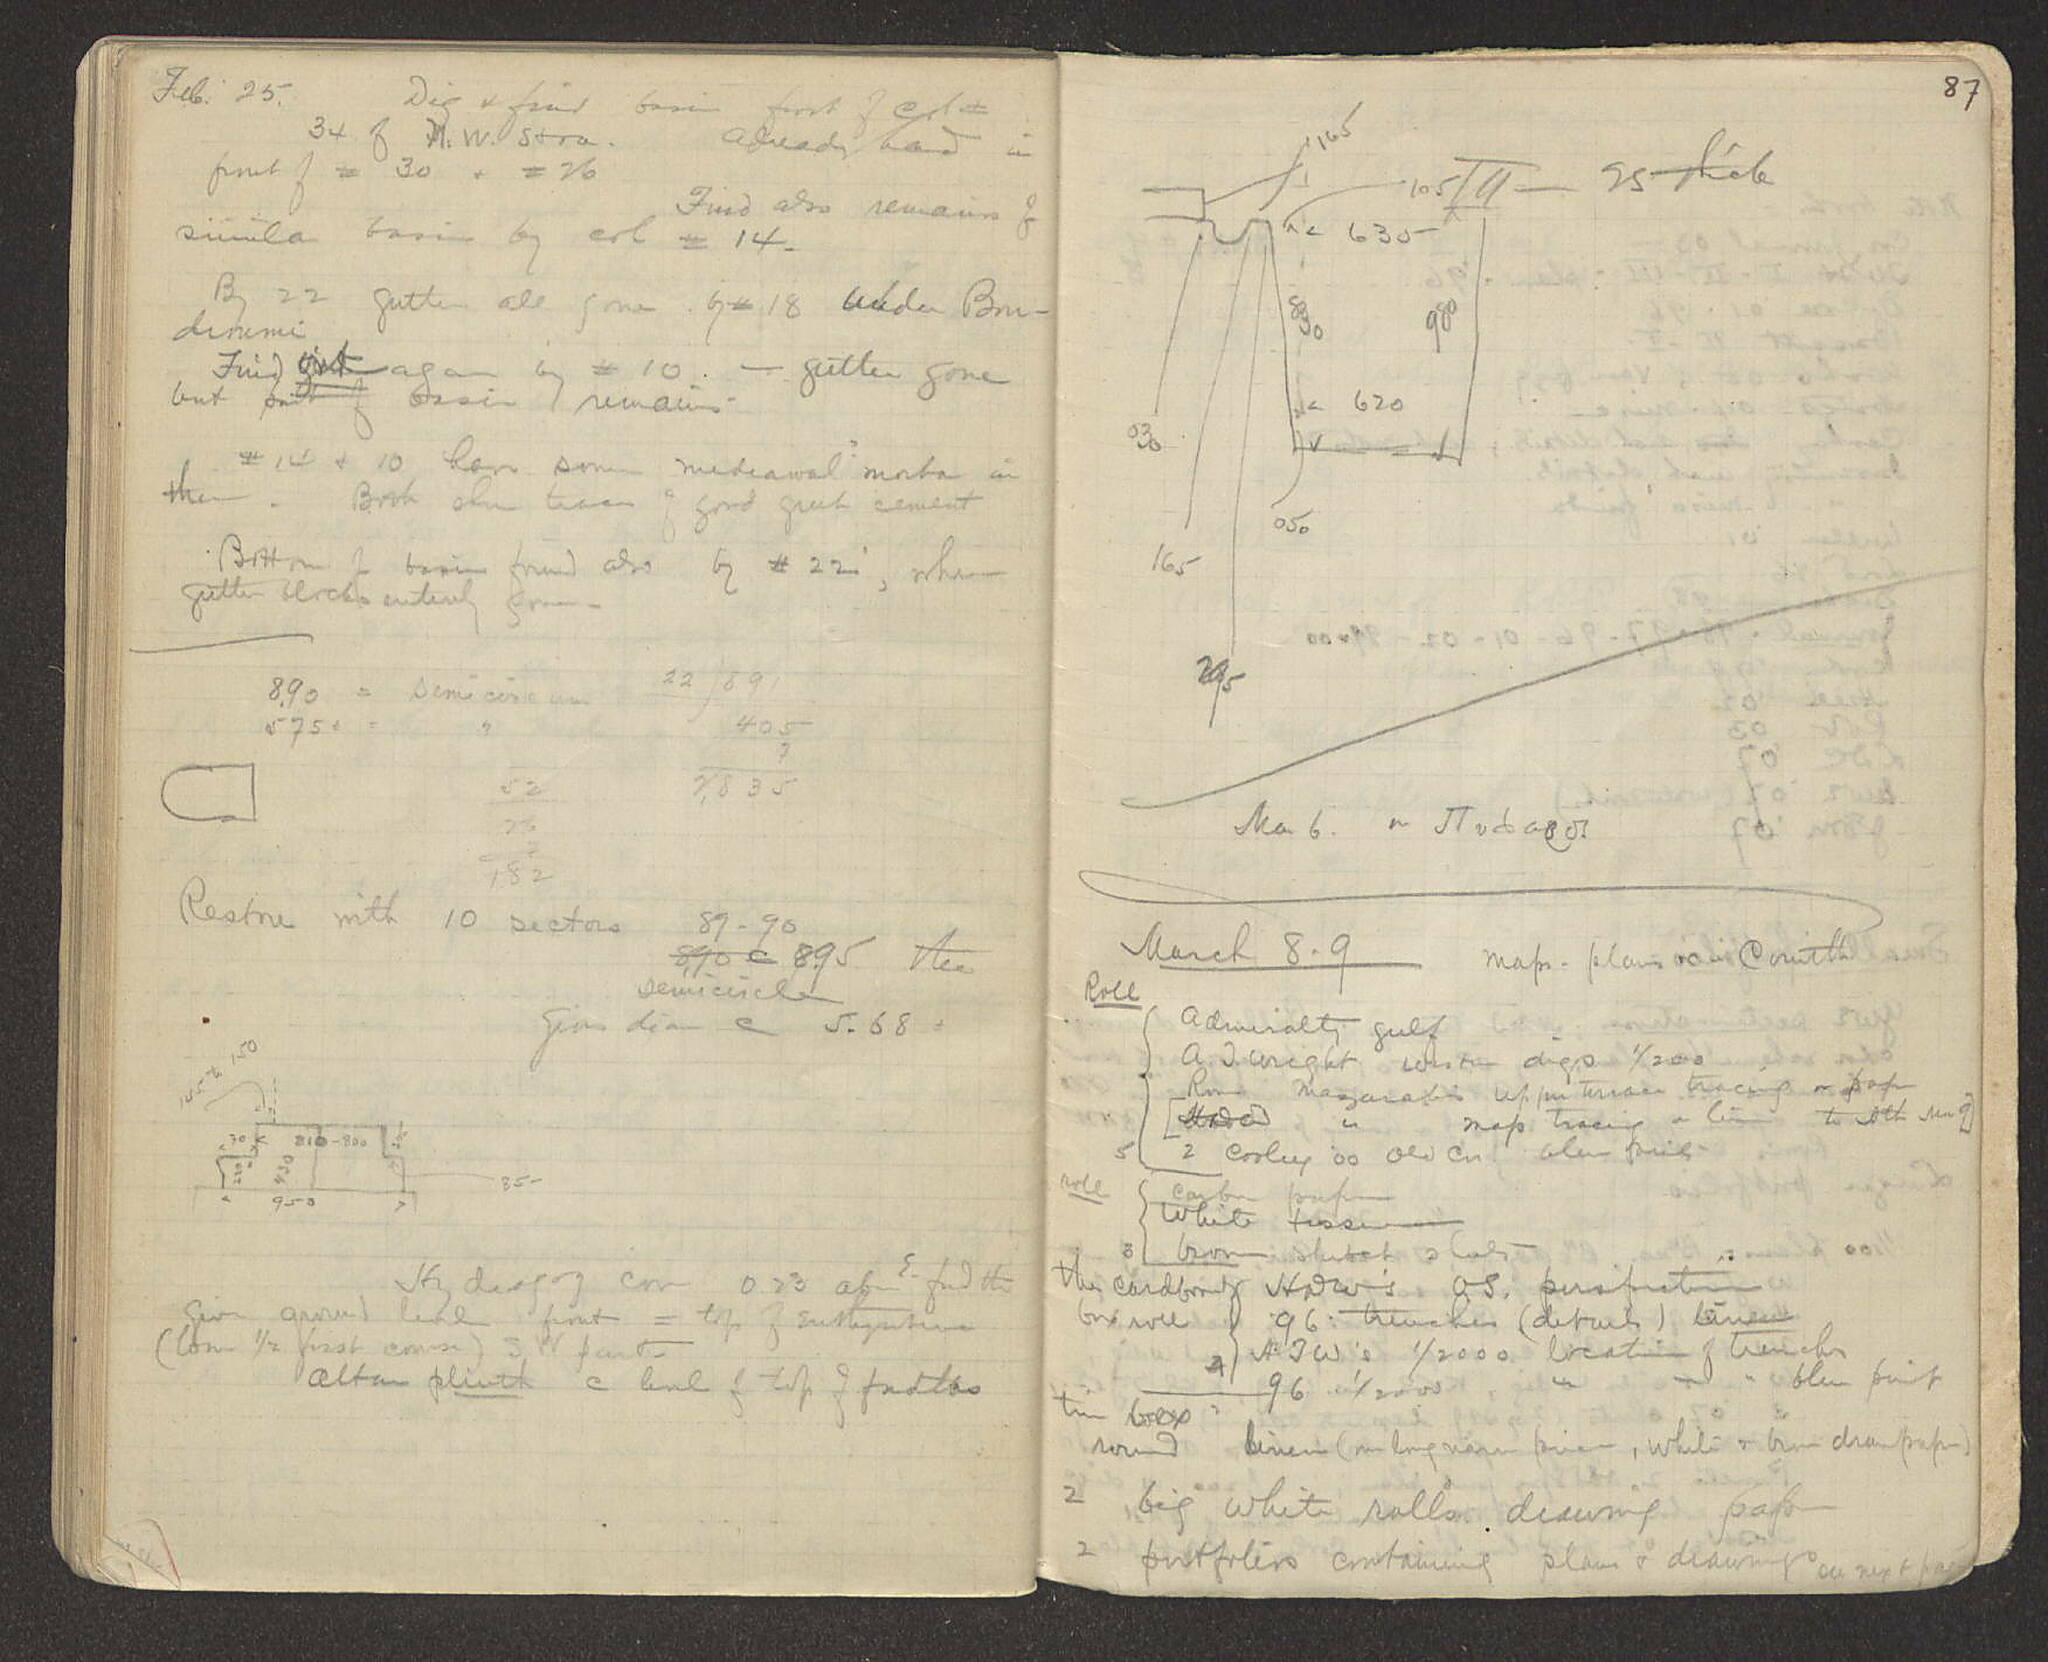 Feb. 25. Dig & find basin front of col #
34 of N. W. Stoa. Already had in
front of # 30 + # 26
Find also remains of
similar basin by col # 14.
By 22 gutter all gone. by # 18 under Bou-
droumi
Find it again by # 10. — gutter gone
but part of basin remains
# 14 + 10 have some mediaeval mortar in
them. Both show traces of good greek cement
Bottom of basin found also by # 22, where
gutter blocks entirely gone
8.90 = semicircum
575 = "
22 / 891
405
7
2,835
52
26
7
182
Restore with 10 sectors 89-90
8,90 c 895 the
semicircle
Gives diam c 5.68
150
70
810-800
220
430
950
85
0.23 above E.
Gives ground level front = top of Euthynteria
(low 1/2 first course) W part
altar plinth c level of top of
87
165
105
25 thick
630
830
980
620
030
050
165
295
Mar 6.
March 8-9 maps - plans in Corinth
Roll
Admiralty gulf
A. T. Wright western digs 1/200
upper terrace tracing on paper
[ " map tracing on linen to Ath Mar 9]
5 2 Cooley '00 Old Cor. blue prints
roll
carbon paper
White tissue
3 brown sketch sheets
cardboard HDW's O.S. perspective
box roll 96 trenches (details) linen
4 A.T.W's 1/2000 location of trenches
96 1/2000 " " " blue print
tin box
round linen (one long narrow piece, white & brown draw paper)
2 big white rolls drawing paper
2 portfolios containing plans & drawings on next page